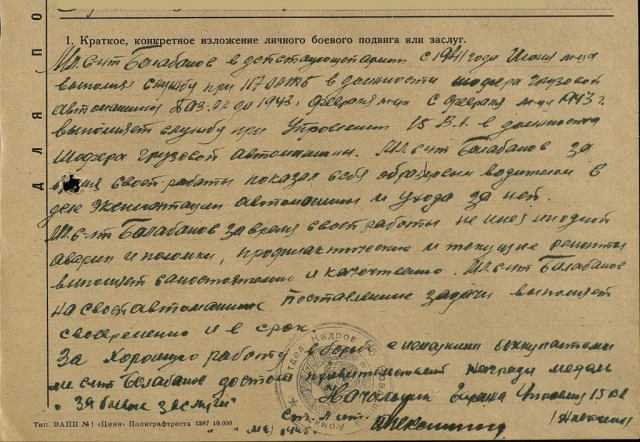 ДЛЯ ПО
1. Краткое, конкретное изложение личного боевого подвига или заслуг.
Мл. с-нт Балабанов в действующей армии с 1941 года Июня м-ца
выполнял службу при 117 в должности шофера грузовой
автомашины ГАЗ-АА до 1943 г. февраля м-ца с февраля м-ца 1943 г.
выполняет службу при Управлении 15 В.А. в должности
шофера грузовой автомашины. Мл. с-нт Балабанов за
время своей работы показал себя образцовым водителем в
деле эксплоатации автомашины и ухода за ней.
Мл. с-нт Балабанов за время своей работы не имел ни одной
аварии и поломки, профилактические и текущие ремонты
выполняет самостоятельно и качественно. Мл. с-нт Балабанов
на своей автомашине поставленные задачи выполняет
своевременно и в срок.
За хорошую работу в борьбе с оккупантами
мл. с-нт Балабанов достоин правительственной награды медаль
"За боевые заслуги" Начальник 15 ВА
Ст. л-нт
Тип. ВАПП № 1 «Циня» Полиграфтреста 1287 10.000